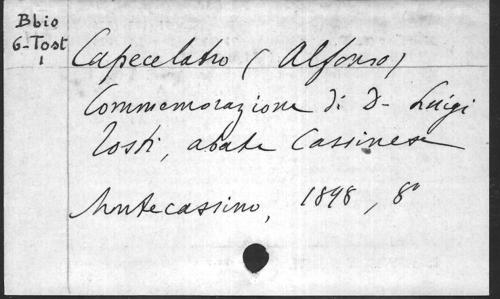 Bbio
6-Tost
1
Capecelatro (Alfonso)
Commemorazione di D. Luigi
Tosti, abate Cassinese
Montecassino, 1898, 8°